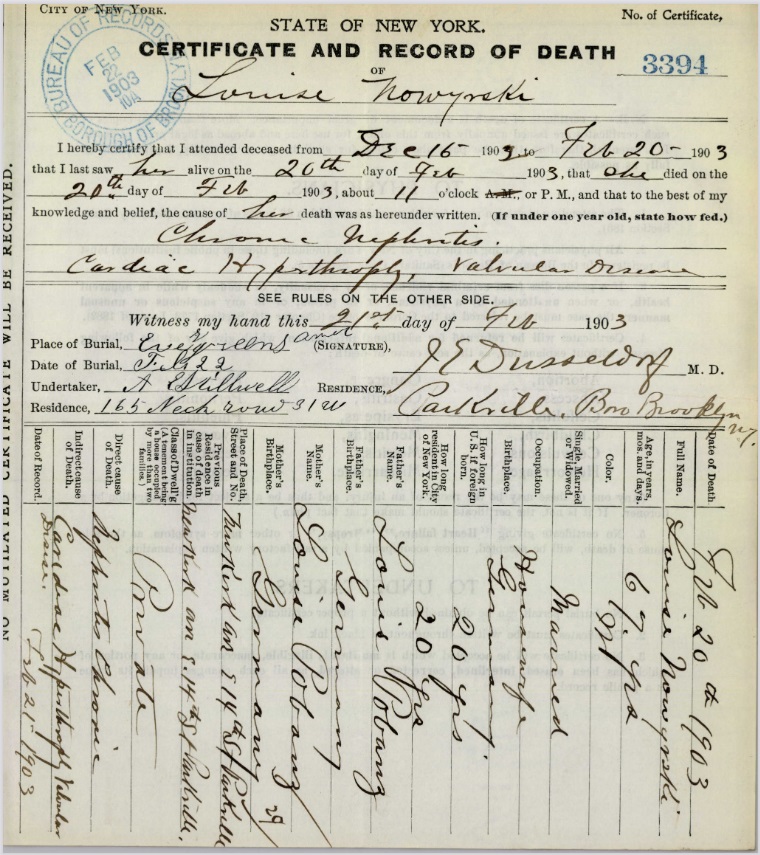 CITY OF NEW YORK.
No. of Certificate,
STATE OF NEW YORK.
CERTIFICATE AND RECORD OF DEATH
3394
OF
Louise Nowyrski
BUREAU OF RECORDS
FEB
1903
BOROUGH OF BROOKLYN
I hereby certify that I attended deceased from Dec 15 1902, to Feb 20 - 1903
that I last saw her alive on the 20th day of Feb 1903, that she died on the
20th day of Feb 1903, about 11 o'clock A.M., or P. M., and that to the best of my
knowledge and belief, the cause of her death was as hereunder written. (If under one year old, state how fed.)
Chronic Nephritis.
Cardiac Hyperthrophy, Valvular Disease
SEE RULES ON THE OTHER SIDE.
Witness my hand this 21st day of Feb 1903
Place of Burial, Evergreens (SIGNATURE),
J E Dusseldorf M. D.
Date of Burial, Feb 22
Undertaker, A Stillwell RESIDENCE,
Parkville, Boro Brooklyn N.Y.
Residence, 165 Neck road
NO MUTILATED CERTIFICATE WILL BE RECEIVED.
Date of Death Feb 20th 1903
Full Name. Louise Nowyrski
Age, in years, mos. and days. 67 yrs
Color. W
Single, Married or Widowed. Married
Occupation. Housewife
Birthplace. Germany.
How long in U. S. if foreign born. 20 yrs
How long resident in City of New York. 20 yrs
Father's Name. Louis Pobanz
Father's Birthplace. Germany
Mother's Name. Louise Pobanz
Mother's Birthplace. Germany 29
Place of Death, Street and No. Newkirk av E 14th St Parkville
Previous Residence in case of death in institution. Newkirk av E. 14th St Parkville.
Class of Dwell'g (A tenement being a house occupied by more than two families.) Private
Direct cause of Death. Nephritis Chronic
Indirect cause of Death. Cardiac Hyperthrophy Valvular Disease.
Date of Record. Feb 21st 1903